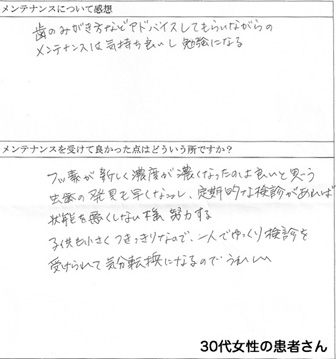 メンテナンスについて感想
歯のみがき方などアドバイスしてもらいながらの
メンテナンスは気持ち良いし勉強になる
メンテナンスを受けて良かった点はどういう所ですか？
フッ素が新しく濃度が濃くなったのは良いと思う
虫歯の発見も早くなるし、定期的な検診があれば
状態を悪くしない様、努力する
子供も小さくつきっきりなので、一人でゆっくり検診を
受けられて気分転換になるのでうれしい
30代女性の患者さん